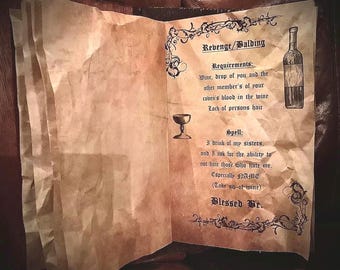 Revenge/Balding
Requirements:
Wine, drop of you and the
other member's of your
coven's blood in the wine
Lack of persons hair
Spell:
I drink of my sisters,
and I ask for the ability to
not hate those who hate me,
Especially NAME
(Take sip of wine)
Blessed Be.